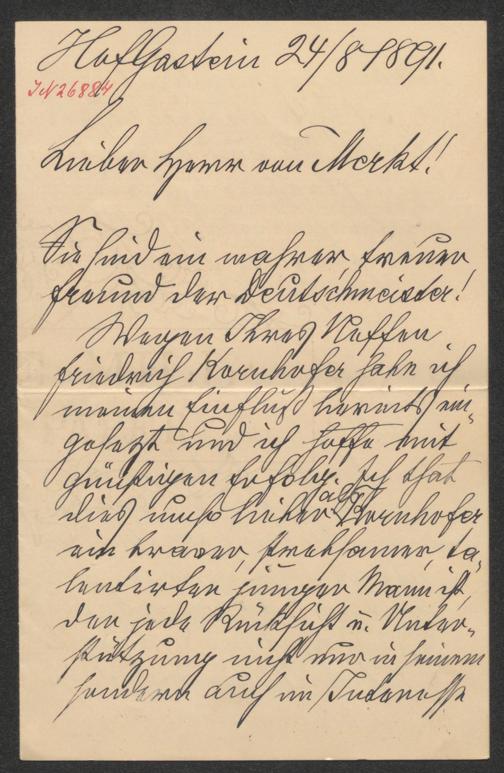 Hof Gastein 24/8 1891.
IN 26884
Lieber Herr von Merkt!
Sie sind ein wahrer treuer
Freund der Deutschmeister!
Wegen Ihres Neffen
Friedrich Kornhofer habe ich
meinen Einfluß bereits ein-
gesetzt und ich hoffe mit
günstigem Erfolg. Ich that
dies umso lieber als Kornhofer
ein braver, strebsamer, ta-
lentirter junger Mann ist,
der jede Rücksicht u. Unter-
stützung nicht nur in seinem
sondern auch im Interesse